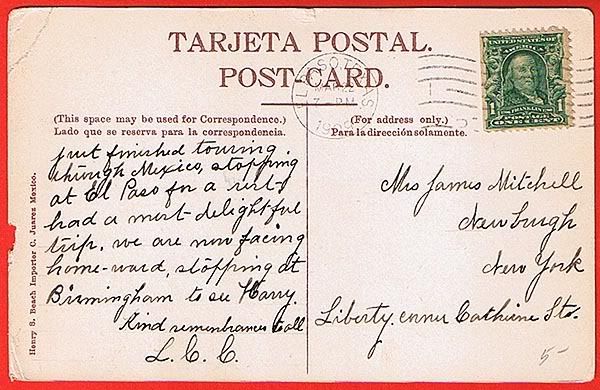 TARJETA POSTAL.
POST-CARD.
(This space may be used for Correspondence.)
Lado que se reserva para la correspondencia.
(For address only.)
Para la dirección solamente.
EL PASO, TEXAS
MAR 22
7 - PM
SERIES 1902
UNITED STATES OF
AMERICA
1 1
FRANKLIN
POSTAGE
ONE CENT
just finished touring.
through Mexico, stopping
at El Paso for a rest-
had a most delightful
trip. we are now facing
home-ward, stopping at
Birmingham to see Harry.
Kind remembrances to all
L. C. C.
Mrs James Mitchell
Newburgh
New York
Liberty. corner Cathrine Sts.
Henry S. Beach Importer C. Juarez Mexico.
5-